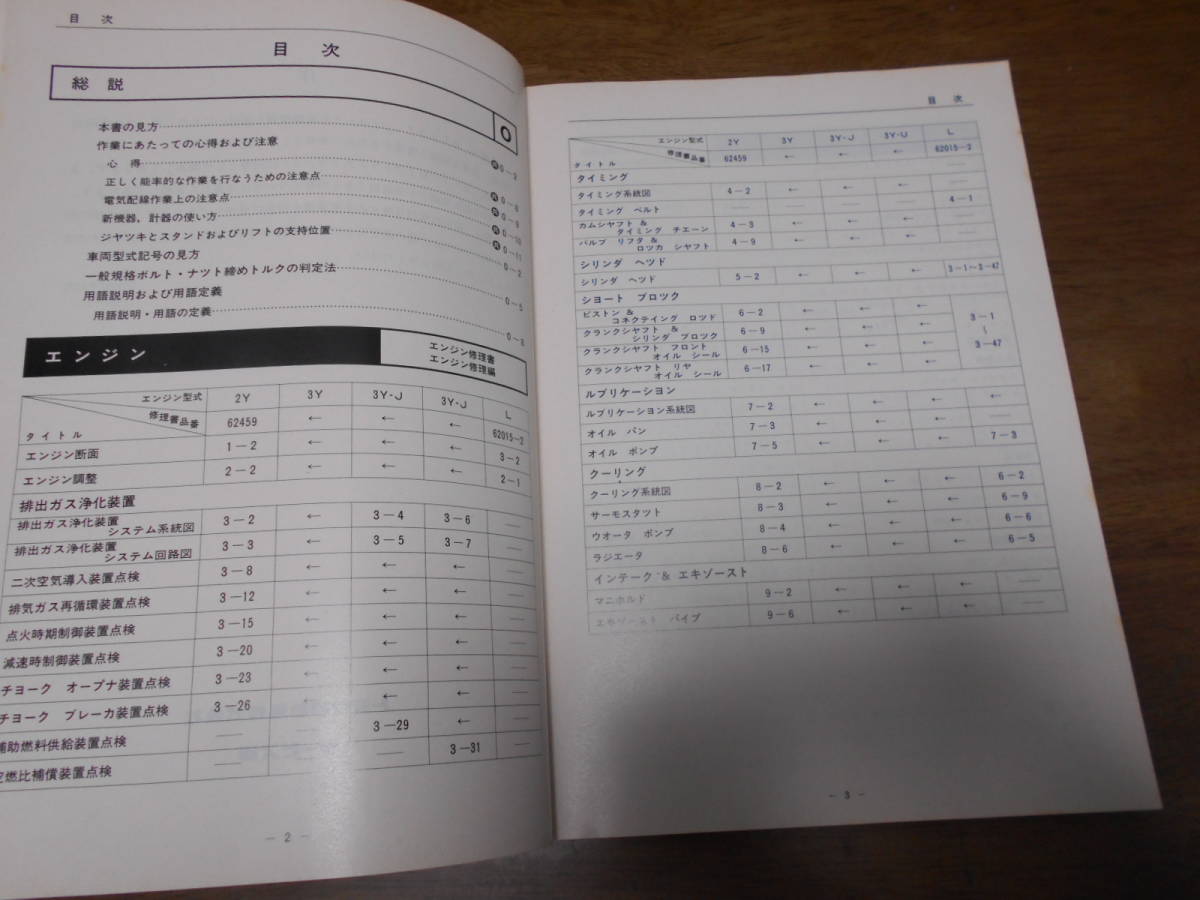 目 次
目 次
総 説
0
本書の見方
作業にあたっての心得および注意
心 得 0-2
正しく能率的な作業を行なうための注意点 0-6
電気配線作業上の注意点 0-9
新機器、計器の使い方 0-10
ジヤツキとスタンドおよびリフトの支持位置 0-11
車両型式記号の見方 0-2
一般規格ボルト・ナツト締めトルクの判定法
用語説明および用語定義 0-5
用語説明・用語の定義 0-8
エンジン
エンジン修理書
エンジン修理編
エンジン型式 2Y 3Y 3Y-J 3Y-J L
修理書品番 62459 ← ← ← 62015-2
タイトル
エンジン断面 1-2 ← ← ← 3-2
エンジン調整 2-2 ← ← ← 2-1
排出ガス浄化装置
排出ガス浄化装置
システム系統図 3-2 ← 3-4 3-6 —
排出ガス浄化装置
システム回路図 3-3 ← 3-5 3-7 —
二次空気導入装置点検 3-8 ← ← ← —
排気ガス再循環装置点検 3-12 ← ← ← —
点火時期制御装置点検 3-15 ← ← ← —
減速時制御装置点検 3-20 ← ← ← —
チヨーク オープナ装置点検 3-23 ← ← ← —
チヨーク ブレーカ装置点検 3-26 ← ← ← —
補助燃料供給装置点検 — — 3-29 ← —
空燃比補償装置点検 — — — 3-31 —
- 2 -
目 次
エンジン型式 2Y 3Y 3Y-J 3Y-U L
修理書品番 62459 ← ← ← 62015-2
タイトル
タイミング
タイミング系統図 4-2 ← ← ← —
タイミング ベルト — — — — 4-1
カムシヤフト &
タイミング チエーン 4-3 ← ← ← —
バルブ リフタ &
ロツカ シヤフト 4-9 ← ← ← —
シリンダ ヘツド
シリンダ ヘツド 5-2 ← ← ← 3-1~3-47
シヨート ブロツク
ピストン &
コネクテイング ロツド 6-2 ← ← ← 3-1
クランクシヤフト &
シリンダ ブロツク 6-9 ← ← ← ~
クランクシヤフト フロント
オイル シール 6-15 ← ← ← 3-47
クランクシヤフト リヤ
オイル シール 6-17 ← ← ←
ルブリケーシヨン
ルブリケーシヨン系統図 7-2 ← ← ← ←
オイル パン 7-3 ← ← ← —
オイル ポンプ 7-5 ← ← ← 7-3
クーリング
クーリング系統図 8-2 ← ← ← 6-2
サーモスタツト 8-3 ← ← ← 6-9
ウオータ ポンプ 8-4 ← ← ← 6-6
ラジエータ 8-6 ← ← ← 6-5
インテーク & エキゾースト
マニホルド 9-2 ← ← ← —
エキゾースト パイプ 9-6 ← ← ← —
- 3 -